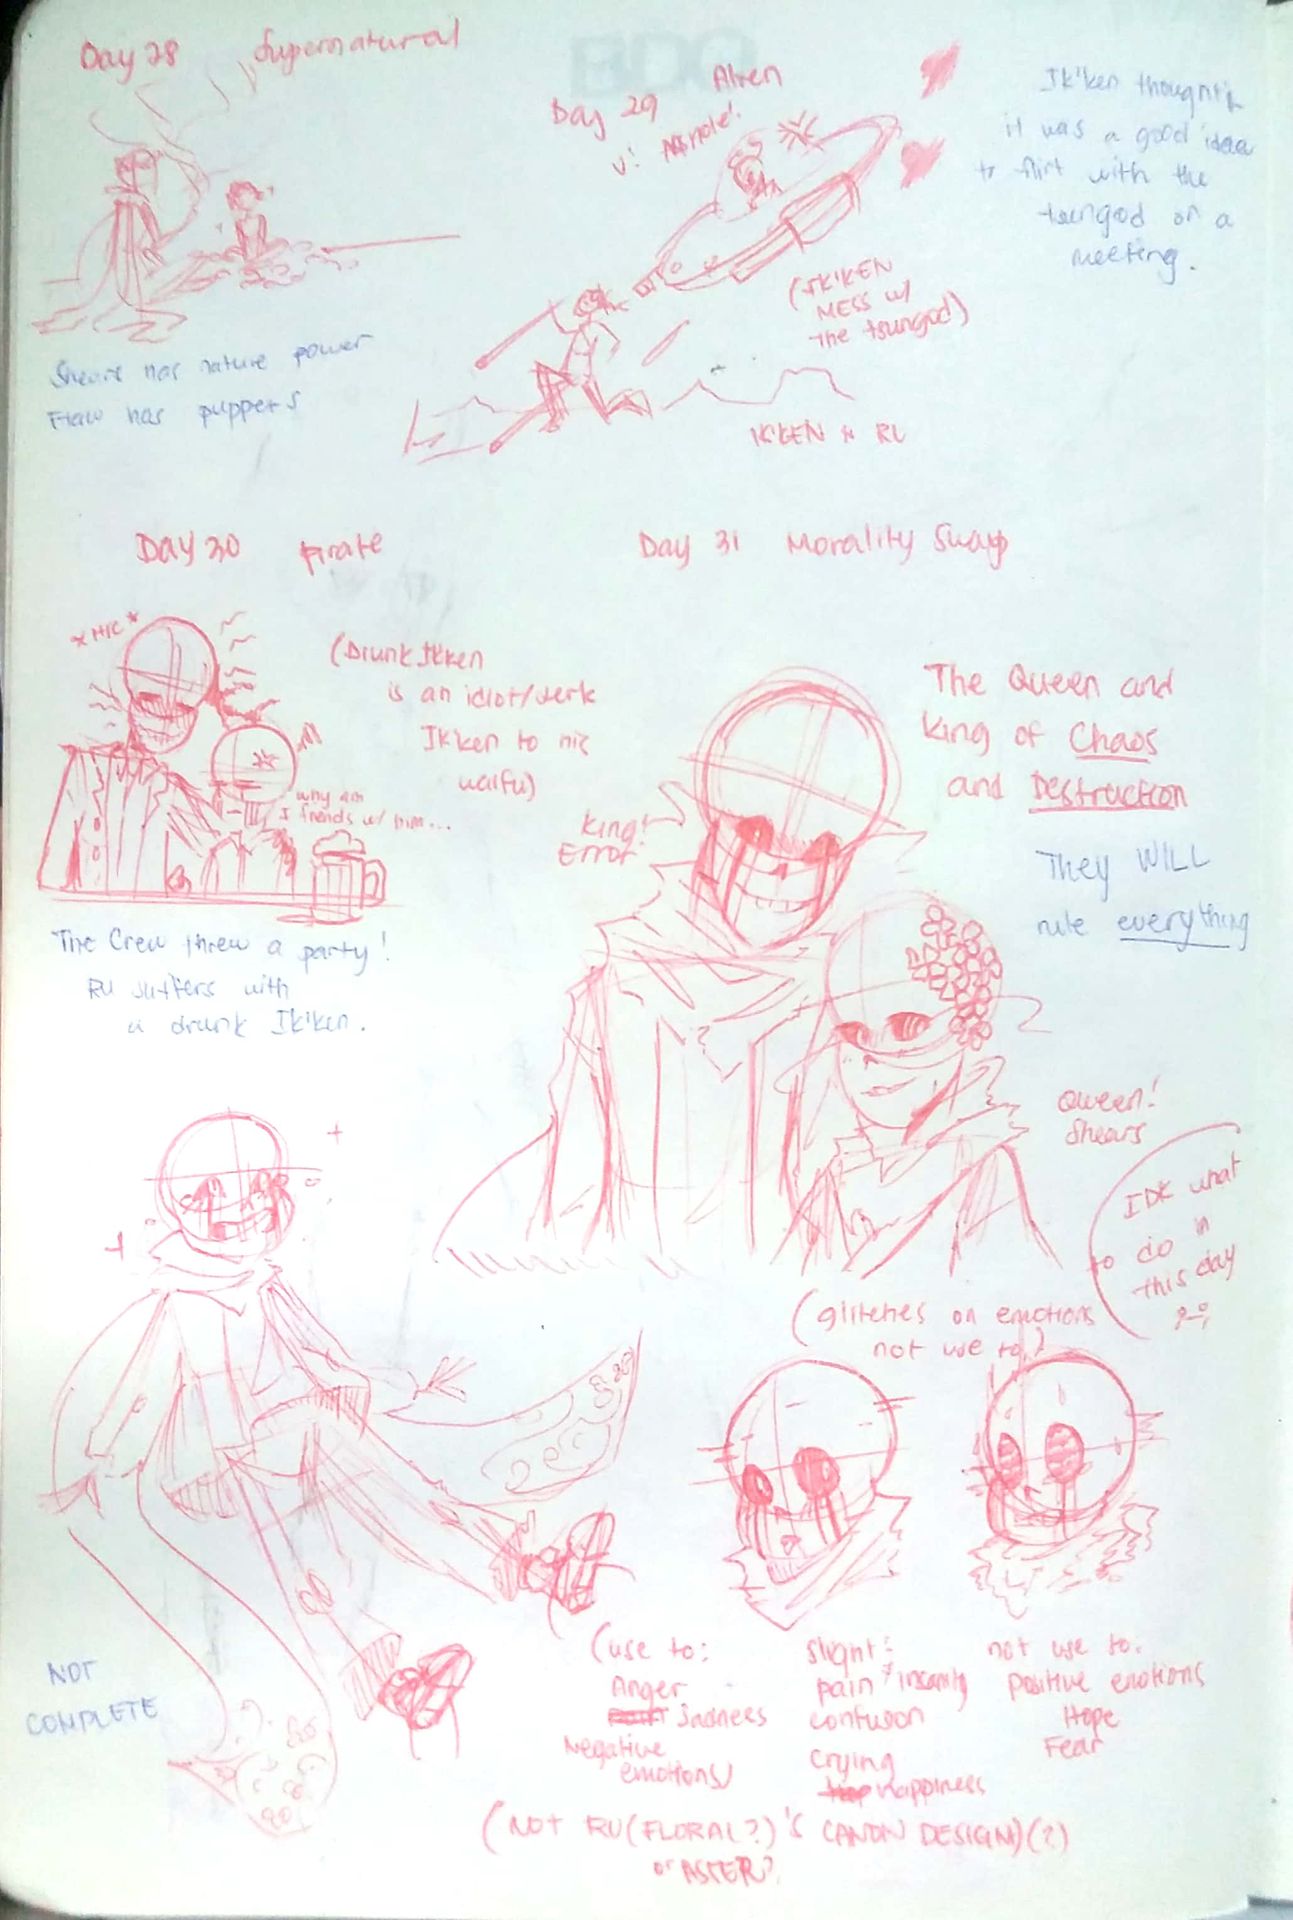 Day 28 Supernatural
Shears has nature power
Flaw has puppets
Day 29 Alien
(IK'KEN
MESS w/
the tsungod)
IK'KEN n RU
Ik'ken thought
it was a good idea
to flirt with the
tsungod on a
meeting.
Day 30 Pirate
*HIC*
(Drunk Ikken
is an idiot/jerk
Ikken to his
waifu)
why am
I friends w/ him...
The Crew threw a party!
RU suffers with
a drunk Ik'ken.
Day 31 Morality Swap
The Queen and
King of Chaos
and Destruction
They WILL
rule everything
King!
Error
Queen!
Shears
IDK what
to do in
this day
(glitches on emotions
not use to.)
NOT
COMPLETE
(use to:
Anger
Sadness
Negative
emotions)
slight:
pain + insanity
confusion
crying
happiness
not use to:
positive emotions
Hope
Fear
(NOT RU(FLORAL?)'S CANON DESIGN)(?)
or ASTER?